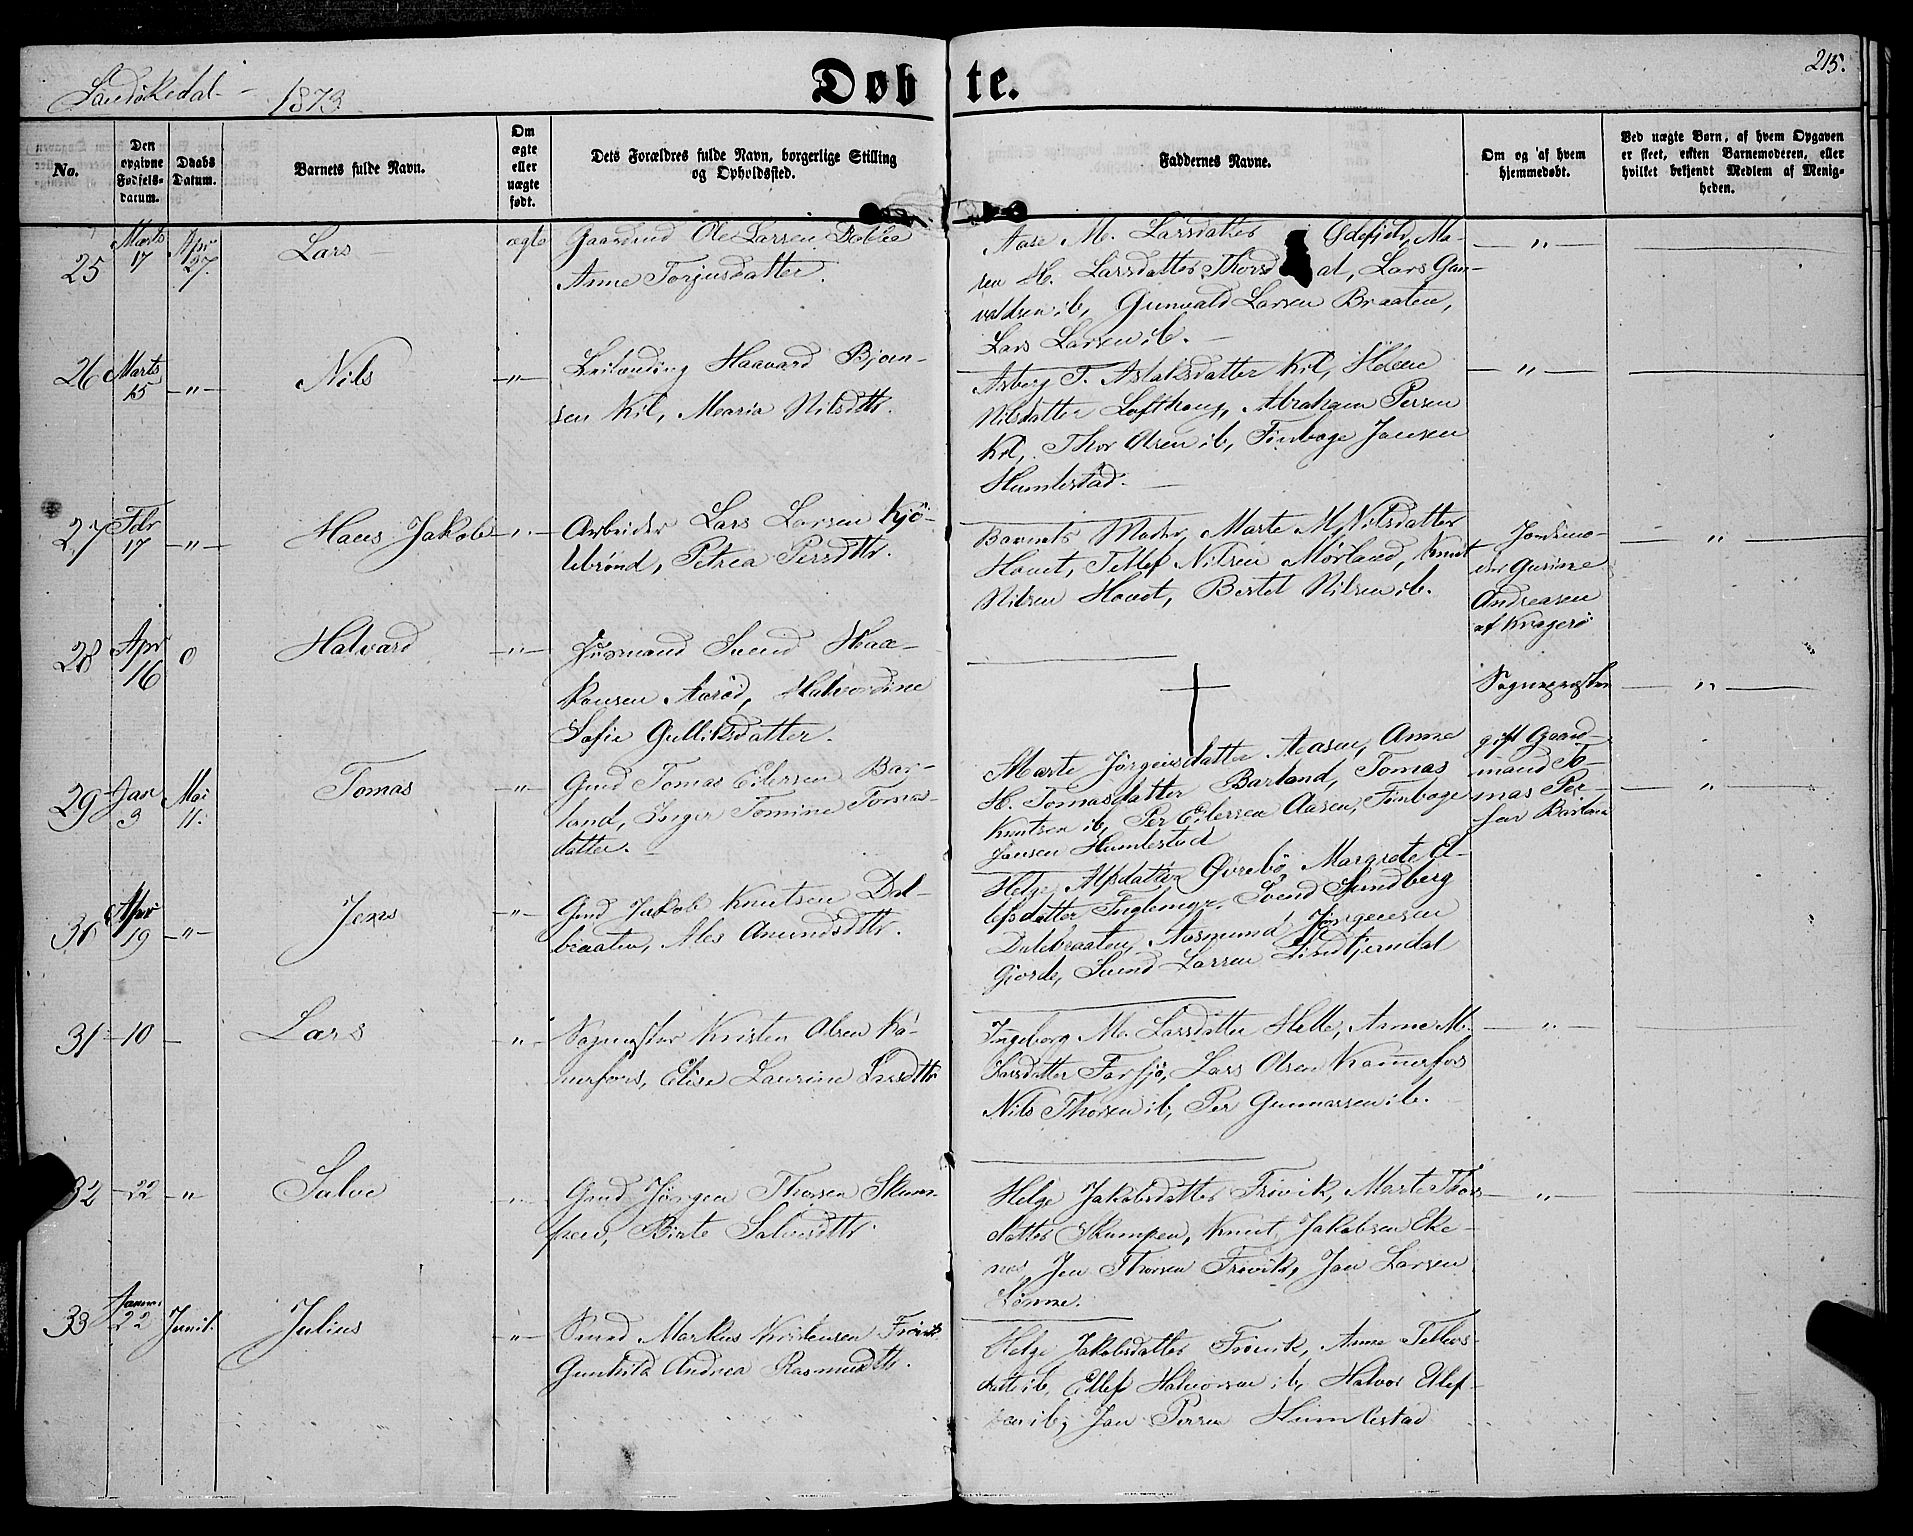 215.
Sandøkedal - 1873
Døbte.
No.
Den opgivne Fødsels-datum.
Daabs Datum.
Barnets fulde Navn.
Om ægte eller uægte født.
Dets Forældres fulde Navn, borgerlige Stilling
og Opholdssted.
Faddernes Navne.
Om og af hvem
hjemmedøbt.
Ved uægte Børn, af hvem Opgaven
er skeet, enten Barnemoderen, eller
hvilket bekjendt Medlem af Menig-
heden.
25 Marts 17 Apr 27. Lars - ægte
Gaardmd Ole Larsen
Anne Torjusdatter.
Aase M. Larsdatter Ødefjeld, Ma-
ren H. Larsdatter Thorsdal, Lars Gun-
valdsen ib, Gunvald Larsen Braaten,
Lars Larsen ib. -
— " —
26 Marts 15 — " — Nils — " —
Leilænding Haavard Bjørn-
sen Kil, Maria Nilsdtr.
Asberg T. Aslaksdatter Kil, Helene
Nilsdatter Lofthaug, Abraham Persen
Kil, Thor Olsen ib, Finboge Jansen
Humlestad. -
— " —
27 Fbr 17 — " — Hans Jakob — " —
Arbeider Lars Larsen Kjø-
lebrønd, Petrea Persdtr.
Barnets Moder, Marte M. Nilsdatter
Hovet, Tellef Nilsen Mørland, Knut
Nilsen Hovet, Bertel Nilsen ib.
Jordemo-
der Gurine
Andreasen
af Kragerø
— " —
28 Apr 16 0 Halvard — " —
Husmand Svend Haa-
konsen Aarød, Halvordine
Sofie Gulliksdatter.
†
Sognepræsten
— " —
29 Jan 3 Mai 11. Tomas — " —
Gmd Tomas Eilersen Bar-
land, Inger Tomine Tomas-
datter. -
Marte Jørgensdatter Aasen, Anne
H. Tomasdatter Barland, Tomas
Knutsen ib, Per Eilersen Aasen, Finboge
Jansen Humlestad
gift Gaard-
mand To-
mas Per-
sen Barland
— " —
30 Apr 19 — " — Jens — " —
Gmd Jakob Knutsen Dal-
braaten, Ales Amundsdtr.
Helge Alfsdatter Øvrebø, Margrete El-
lefsdatter Svend Sundberg
Dalebraaten, Aasmund Jørgensen
Gjerde, Svend Larsen Lindtjerndal
31 - 10 - Lars — " —
Kristen Olsen Ka-
merfors, Elise Laurine Larsdtr
Ingeborg M. Larsdatter Helle, Anne M.
Larsdatter Farsjø, Lars Olsen Kamerfos
Nils Thorsen ib, Per Gunnarsen ib.
— " —
32 - 22 " Salve — " —
Gmd Jørgen Thorsen Skum-
pen, Birte Salvesdtr.
Helge Jakobsdatter Frøvik, Marte Thors-
datter Skumpen, Knut Jakobsen Eke-
nes, Jen Thorsen Frøvik, Jan Larsen
Lønne.
— " —
33 Januar 22 Juni 1. Julius — " —
Smed Markus Kristensen Frøvik
Gunhild Andrea Rasmusdtr.
Helge Jakobsdatter Frøvik, Anne Tellevs-
datter ib, Ellef Halvorsen ib, Halvor Ellef-
sen ib, Jan Persen Humlestad